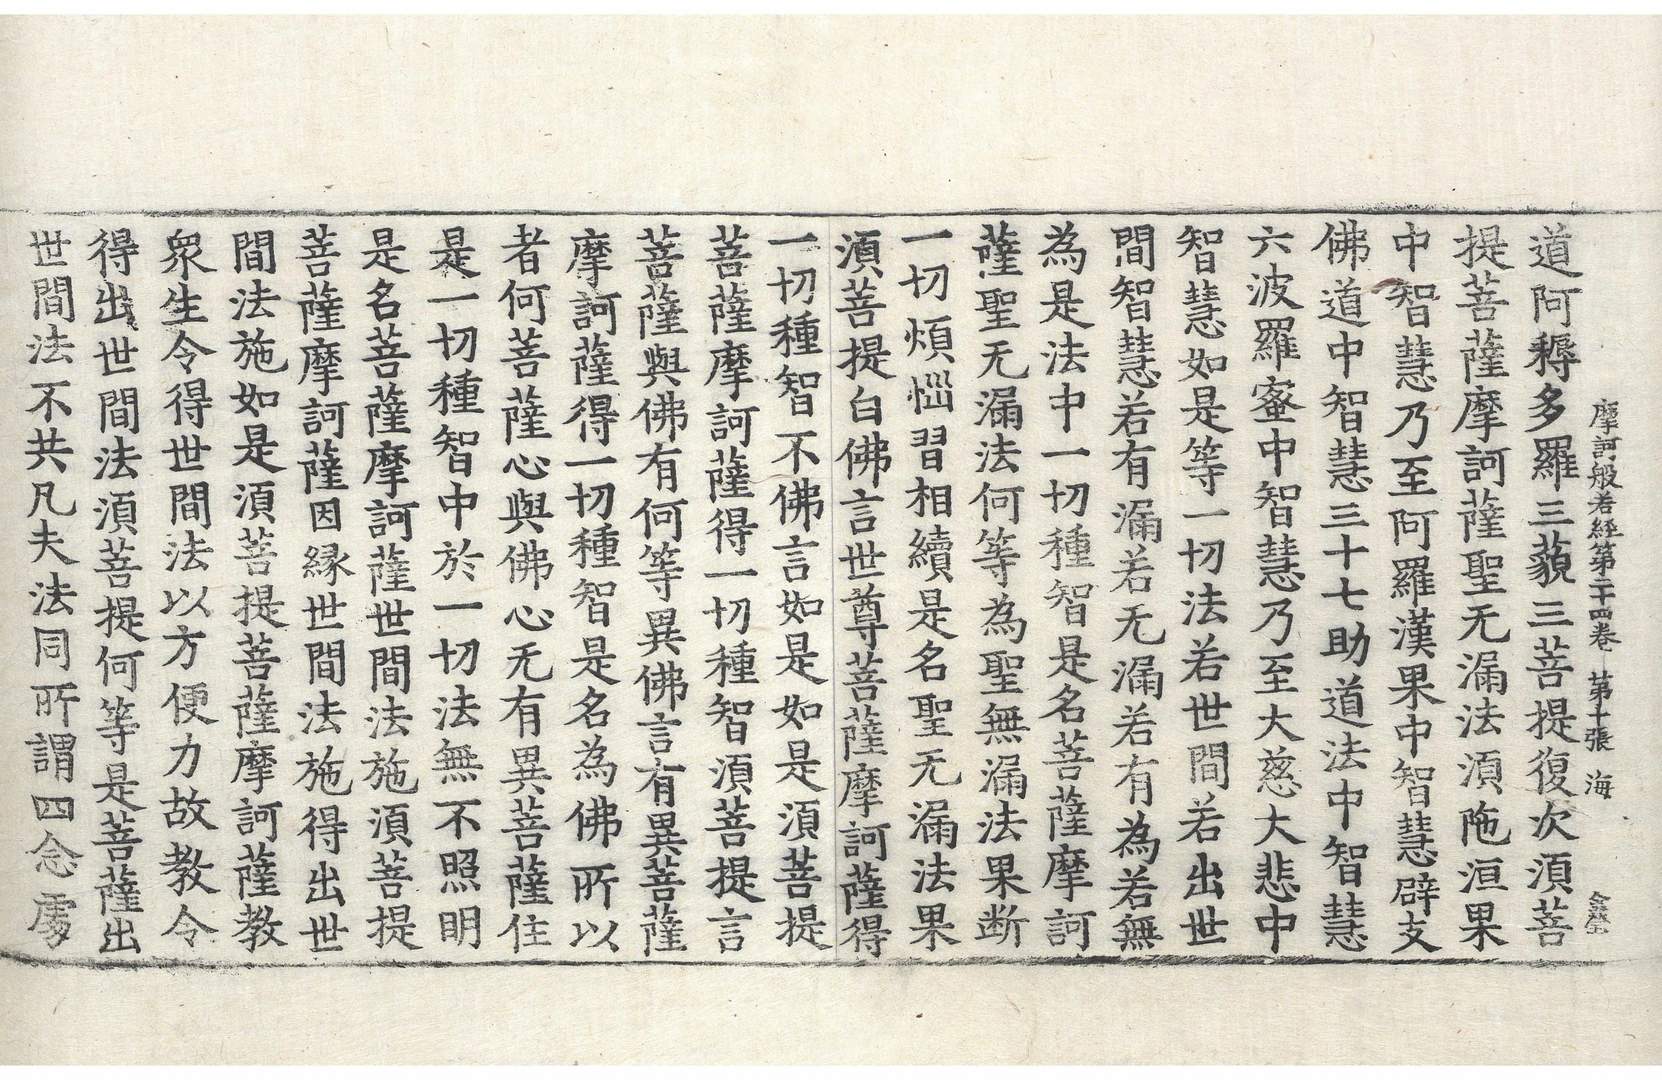 摩訶般若經第二十四卷　第十張　海
道阿耨多羅三藐三菩提復次湏菩
提菩薩摩訶薩聖无漏法湏陁洹果
中智慧乃至阿羅漢果中智慧辟支
佛道中智慧三十七助道法中智慧
六波羅蜜中智慧乃至大慈大悲中
智慧如是等一切法若世間若出世
間智慧若有漏若无漏若有為若無
為是法中一切種智是名菩薩摩訶
薩聖无漏法何等為聖無漏法果断
一切煩惱習相續是名聖无漏法果
湏菩提白佛言世尊菩薩摩訶薩得
一切種智不佛言如是如是湏菩提
菩薩摩訶薩得一切種智湏菩提言
菩薩與佛有何等異佛言有異菩薩
摩訶薩得一切種智是名為佛所以
者何菩薩心與佛心无有異菩薩住
是一切種智中於一切法無不照明
是名菩薩摩訶薩世間法施湏菩提
菩薩摩訶薩因緣世間法施得出世
間法施如是湏菩提菩薩摩訶薩教
衆生令得世間法以方便力故教令
得出世間法湏菩提何等是菩薩出
世間法不共凡夫法同所謂四念處